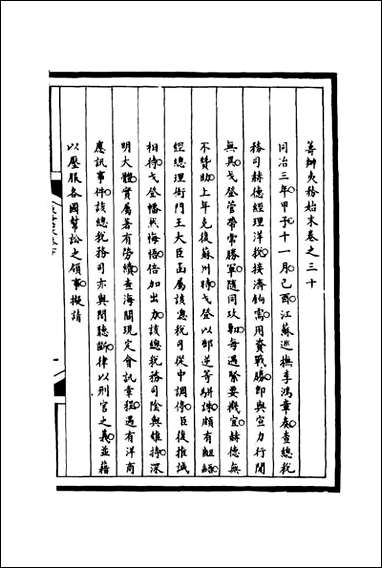 籌辦夷務始末卷之三十
同治三年甲子十一月己酉江蘇巡撫李鴻章奏查總稅
務司赫德經理洋稅接濟餉需用資戰勝即與宣力行間
無異戈登管帶常勝軍隨同攻剿每遇緊要機宜赫德無
不贊助上年克復蘇州時戈登以郜逆等駢誅頗有齟齬
經總理衙門王大臣函屬該總稅司從中調停臣復推誠
相待戈登幡然悔悟倍加出力該總稅務司陰與維持深
明大體實屬著有勞績查海關現定會訊章程遇有洋商
應訊事件該總稅務司亦與聞聽斷律以刑官之義並藉
以壓服各國幫訟之領事擬請